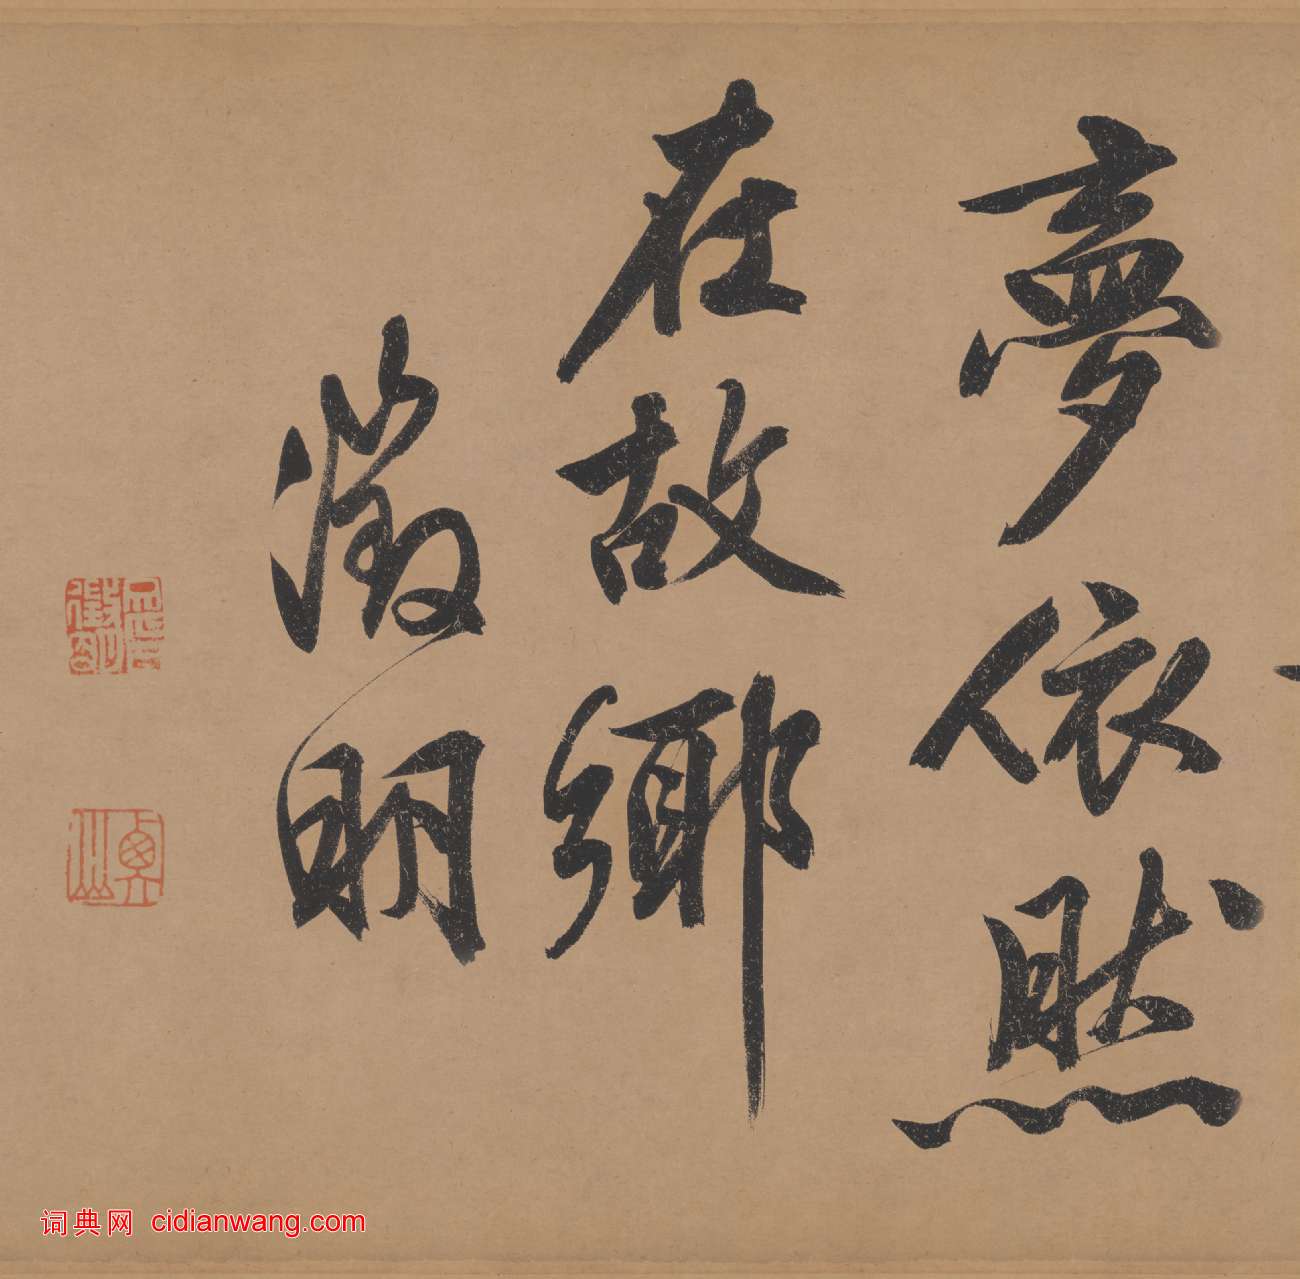 夢依然
在故鄉
徵明
詞典网 cidianwang.com